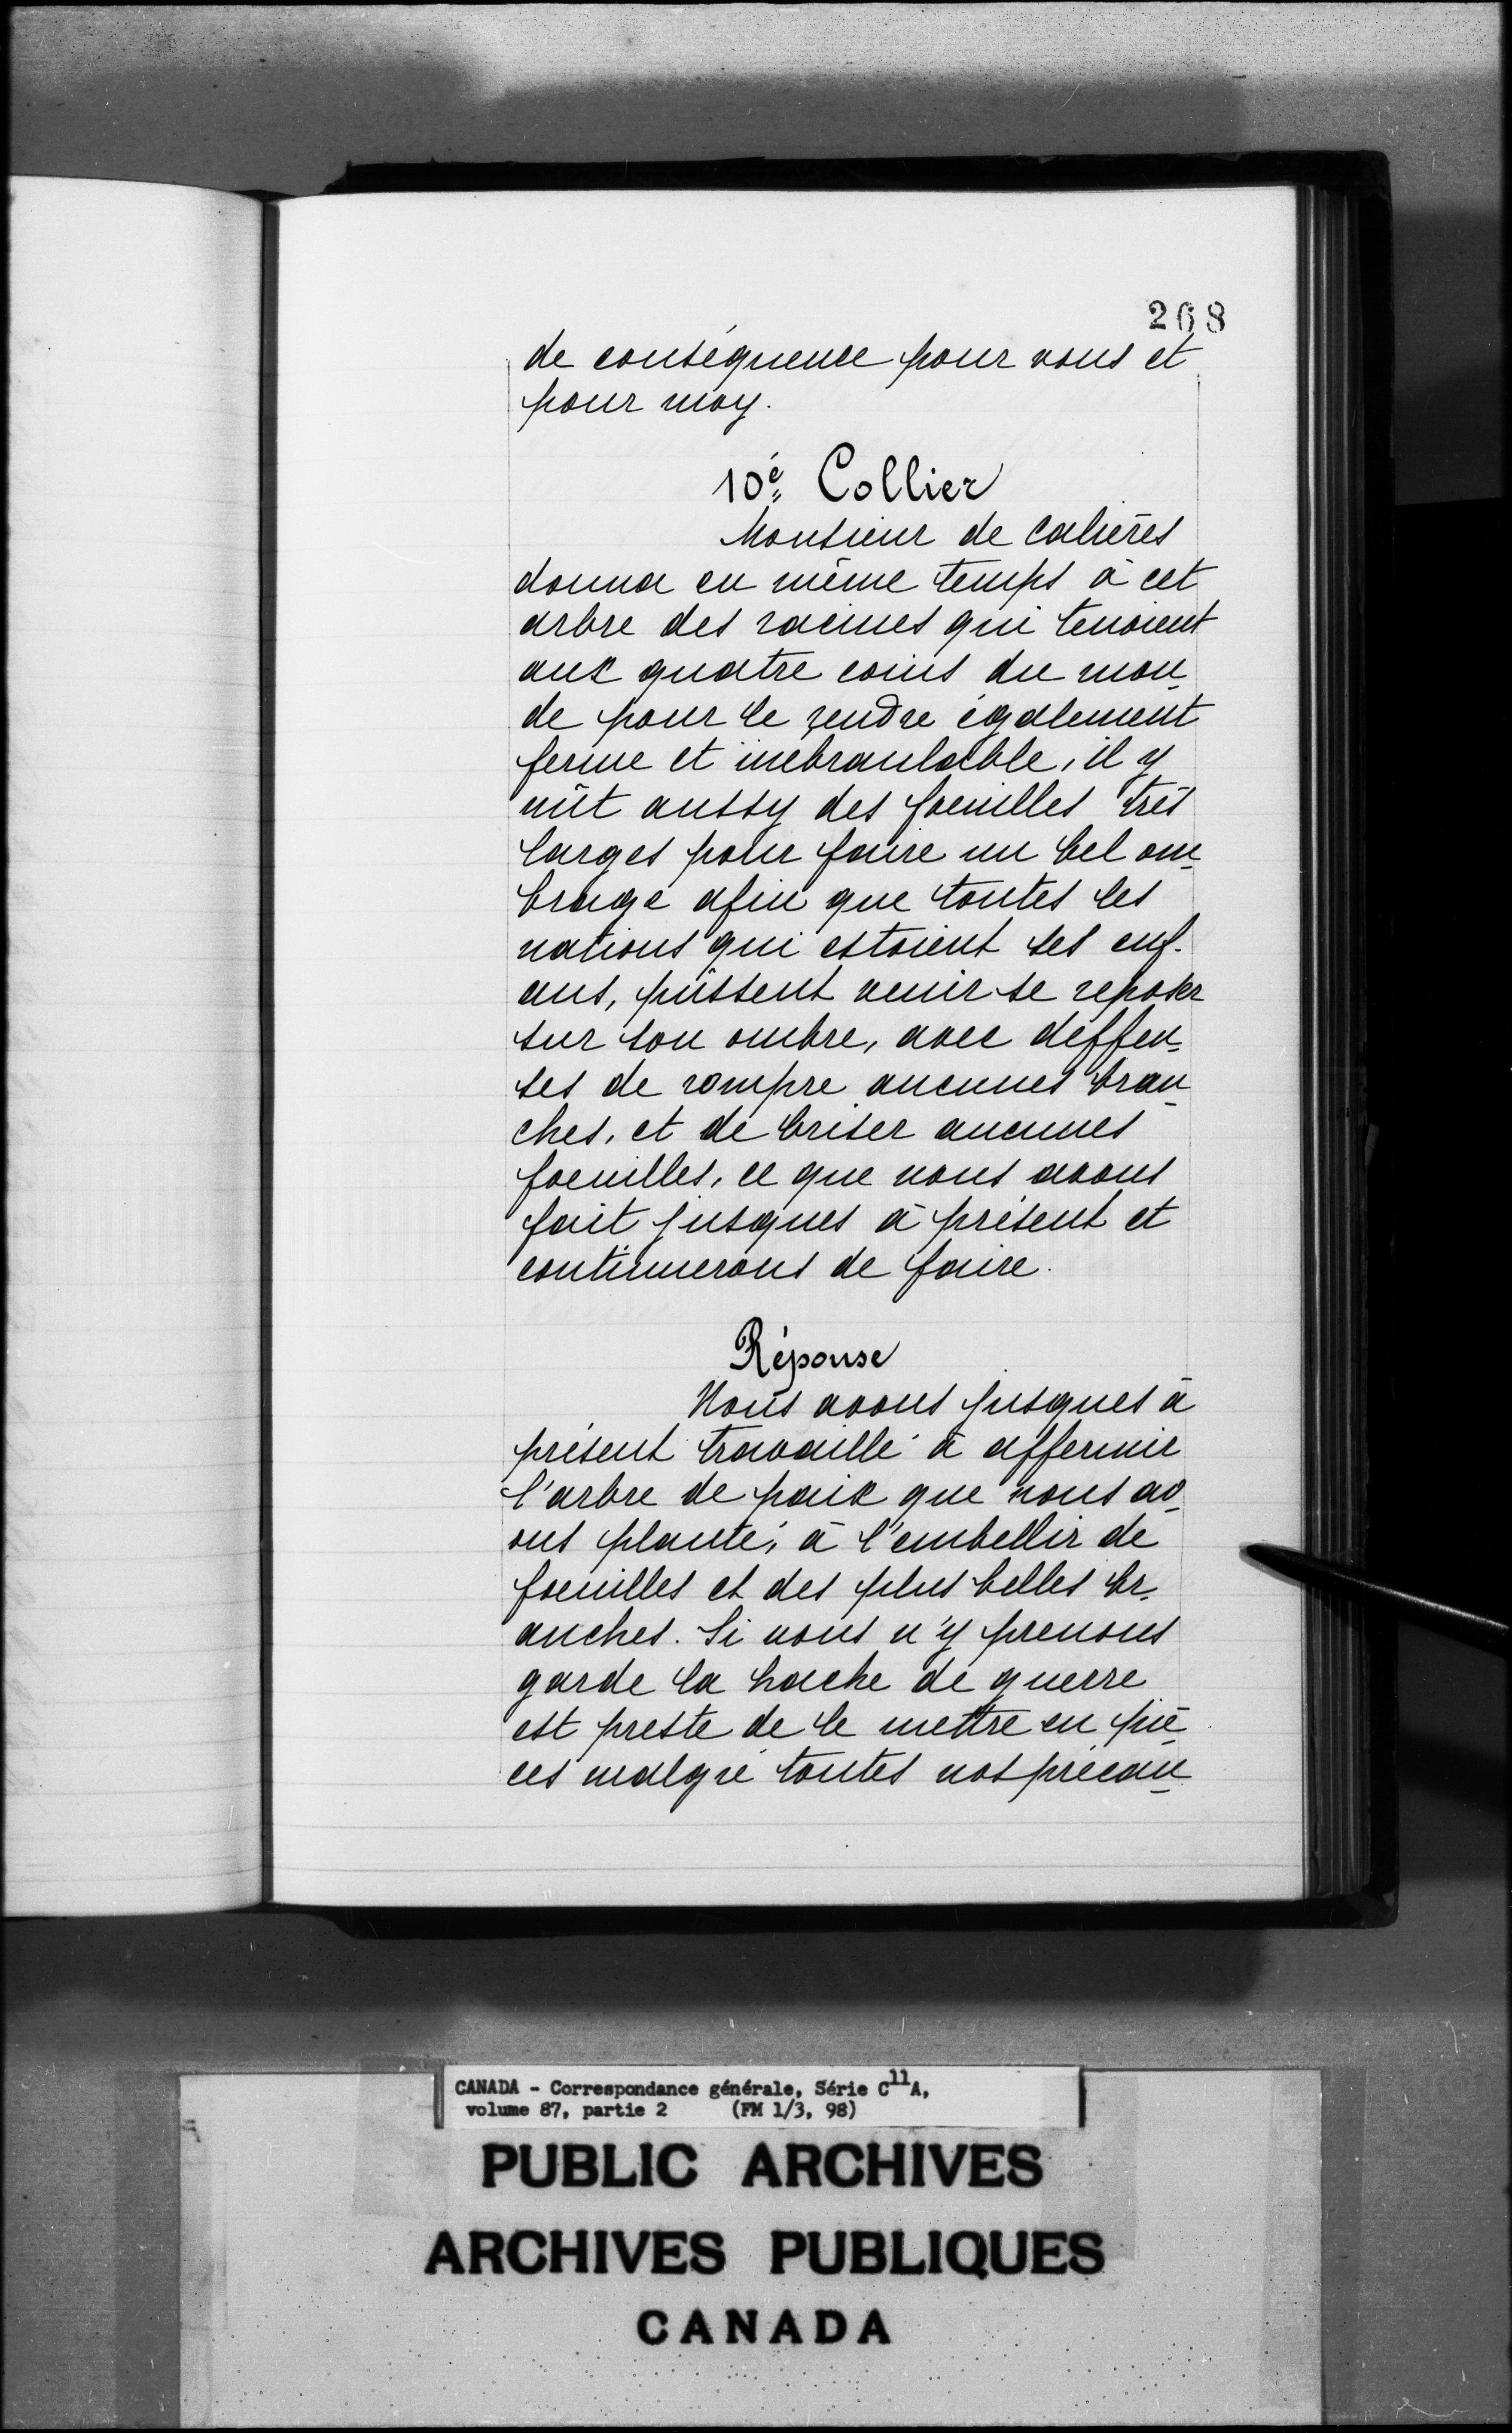 268
de conséquence pour vous et
pour moy.
10e. Collier
Monsieur de Calières
donna en même temps à cet
arbre des racines qui tenoient
aux quatre coins du mon-
de pour le rendre également
ferme et inebranlable, il y
mit aussy des foeuilles très
larges pour faire un bel om-
brage afin que toutes les
nations qui estoient ses enf-
ans, pûssent venir se reposer
sur son ombre, avec deffen-
ses de rompre aucunes bran-
ches, et de briser aucunes
foeuilles, ce que nous avons
fait jusques à présent et
continuerons de faire.
Réponse
Nous avons jusques à
présent travaillé à affermir
l'arbre de paix que nous av-
ons planté, à l'embellir de
foeuilles et des plus belles br-
anches. Si nous n'y prenons
garde la hache de guerre
est preste de le mettre en piè-
ces malgré toutes nos précau-
CANADA - Correspondance générale, Série C11A,
volume 87, partie 2 (FM 1/3, 98)
PUBLIC ARCHIVES
ARCHIVES PUBLIQUES
CANADA